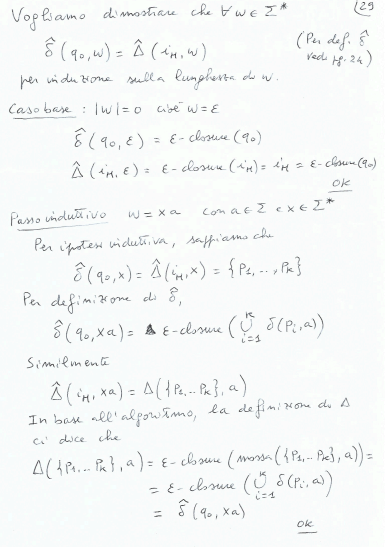 Vogliamo dimostrare che ∀ w ∈ Σ* (29
δ̂ (q₀, w) = Δ̂ (i_M, w) (Per def. δ̂
vedi pg. 24)
per induzione sulla lunghezza di w.
Caso base : |w| = 0 cioè w = ε
δ̂ (q₀, ε) = ε-closure (q₀)
Δ̂ (i_M, ε) = ε-closure (i_M) = i_M = ε-closure (q₀)
OK
Passo induttivo w = xa con a ∈ Σ e x ∈ Σ*
Per ipotesi induttiva, sappiamo che
δ̂ (q₀, x) = Δ̂ (i_M, x) = {P₁, .., Pₖ}
Per definizione di δ̂,
δ̂ (q₀, xa) = ε-closure (⋃ᵢ₌₁ᵏ δ(Pᵢ, a))
Similmente
Δ̂ (i_M, xa) = Δ ({P₁, .. Pₖ}, a)
In base all'algoritmo, la definizione di Δ
ci dice che
Δ ({P₁, .. Pₖ}, a) = ε-closure (mossa ({P₁, .. Pₖ}, a)) =
= ε-closure (⋃ᵢ₌₁ᵏ δ(Pᵢ, a))
= δ̂ (q₀, xa)
OK